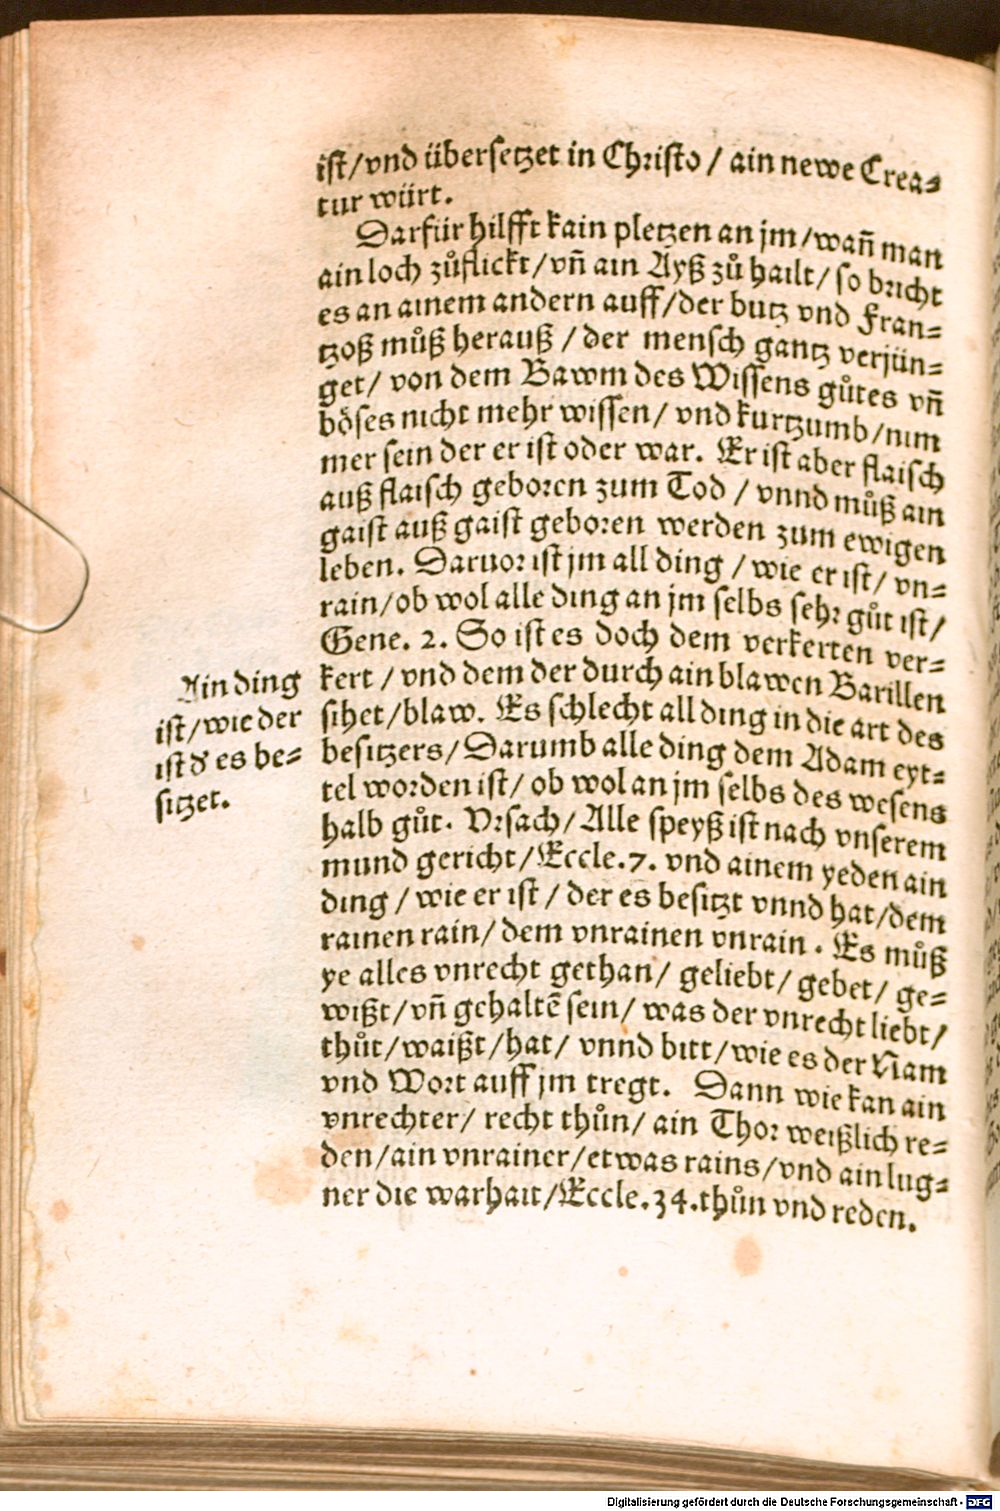 ist/vnd übersetzet in Christo / ain newe Crea-
tur würt.
Darfür hilfft kain pletzen an jm/wañ man
ain loch zůflickt/vñ ain Ayß zů hailt/ so bricht
es an ainem andern auff/der butz vnd Fran-
tzoß můß herauß / der mensch gantz verjün-
get/ von dem Bawm des Wissens gůtes vñ
böses nicht mehr wissen/ vnd kurtzumb/nim
mer sein der er ist oder war. Er ist aber flaisch
auß flaisch geboren zum Tod / vnnd můß ain
gaist auß gaist geboren werden zum ewigen
leben. Daruor ist jm all ding / wie er ist/ vn-
rain/ob wol alle ding an jm selbs sehr gůt ist/
Gene. 2. So ist es doch dem verkerten ver-
kert / vnd dem der durch ain blawen Barillen
sihet/blaw. Es schlecht all ding in die art des
besitzers/Darumb alle ding dem Adam eyt-
tel worden ist/ ob wol an jm selbs des wesens
halb gůt. Vrsach/Alle speyß ist nach vnserem
mund gericht/Eccle.7. vnd ainem yeden ain
ding / wie er ist / der es besitzt vnnd hat/dem
rainen rain/ dem vnrainen vnrain. Es můß
ye alles vnrecht gethan/ geliebt/ gebet/ ge-
wißt/vñ gehaltē sein/ was der vnrecht liebt/
thůt/waißt/hat/ vnnd bitt/wie es der Nam
vnd Wort auff jm tregt. Dann wie kan ain
vnrechter/ recht thůn/ ain Thor weißlich re-
den/ain vnrainer/etwas rains/vnd ain lug-
ner die warhait/Eccle.34.thůn vnd reden.
Ain ding
ist/wie der
ist d' es be-
sitzet.
Digitalisierung gefördert durch die Deutsche Forschungsgemeinschaft - DFG